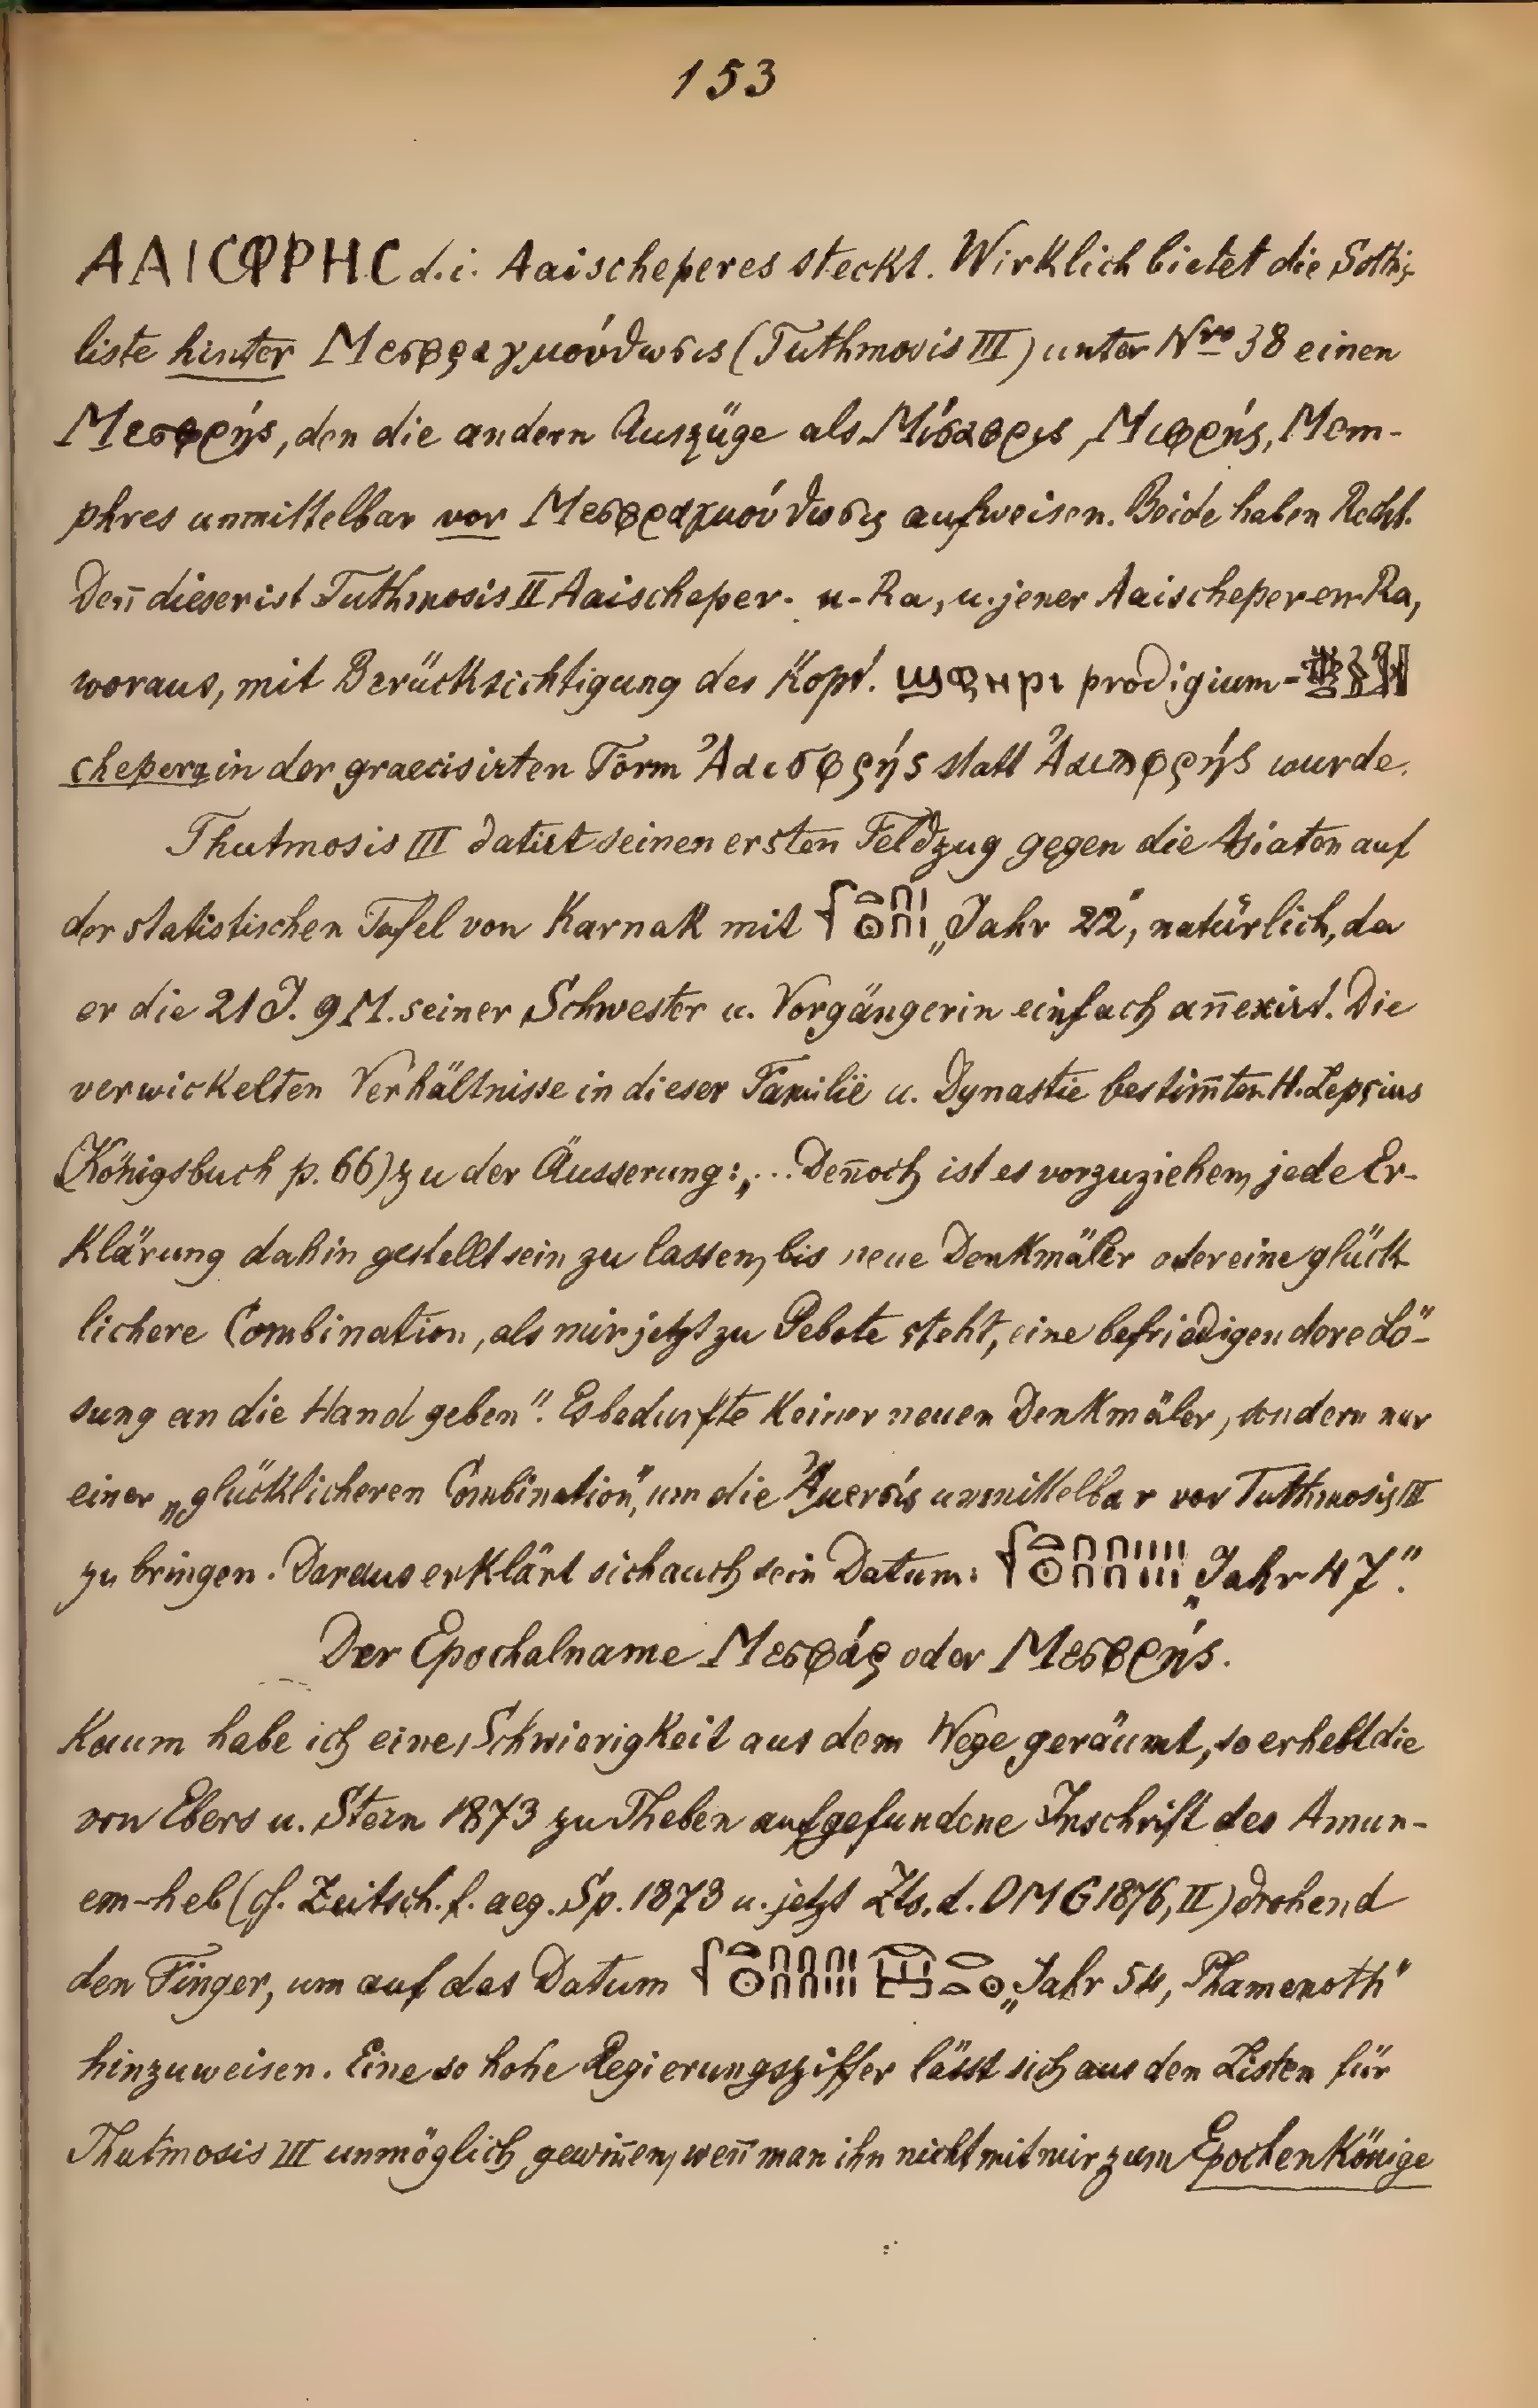 153
ΑΑΙCΦΡΗC d. i. Aaischeperes steckt. Wirklich bietet die Sothis
liste hinter Μεσφραγμούθωσις (Tuthmosis III) unter Nro 38 einen
Μεσφρής, den die andern Auszüge als Μίσαφρις, Μιφρής, Mem-
phres unmittelbar vor Μεσφραγμούθωσις aufweisen. Beide haben Recht.
Deñ dieser ist Tuthmosis II Aaischeper- u-Ra, u. jener Aaischeper-en-Ra,
woraus, mit Berücksichtigung des Kopt. ϣⲫⲏⲣⲓ prodigium =
chepera in der graecisirten Form Ἀαισφρής statt wurde.
Thutmosis III datirt seinen ersten Feldzug gegen die Asiaten auf
der statistischen Tafel von Karnak mit 𓆳𓏏𓊗𓎆𓎆𓏤𓏤 „Jahr 22", natürlich, da
er die 21 J. 9 M. seiner Schwester u. Vorgängerin einfach añexirt. Die
verwickelten Verhältnisse in dieser Familie u. Dynastie bestim̃ten H. Lepsius
(Königsbuch p. 66) zu der Äusserung: „... Deñoch ist es vorzuziehen, jede Er-
klärung dahin gestellt sein zu lassen, bis neue Denkmäler oder eine glück
lichere Combination, als mir jetzt zu Gebote steht, eine befriedigendere Lö-
sung an die Hand geben". Es bedurfte keiner neuen Denkmäler, sondern nur
einer „glücklicheren Combination", um die unmittelbar vor Tuthmosis III
zu bringen. Daraus erklärt sich auch sein Datum: 𓆳𓏏𓊗𓎆𓎆𓎆𓎆𓏤𓏤𓏤𓏤𓏤𓏤𓏤 „Jahr 47".
Der Epochalname Μεσφρής.
Kaum habe ich eine Schwierigkeit aus dem Wege geräumt, so erhebt die
von Ebers u. Stern 1873 zu Theben aufgefundene Inschrift des Amun-
em-heb (cf. Zeitsch. f. aeg. Sp. 1873 u. jetzt Zts. d. DMG 1876, II) drohend
den Finger, um auf das Datum „Jahr 54, Phamenoth"
hinzuweisen. Eine so hohe Regierungsziffer lässt sich aus den Listen für
Thutmosis III unmöglich gewiñen, weñ man ihn nicht mit mir zum Epochenkönige